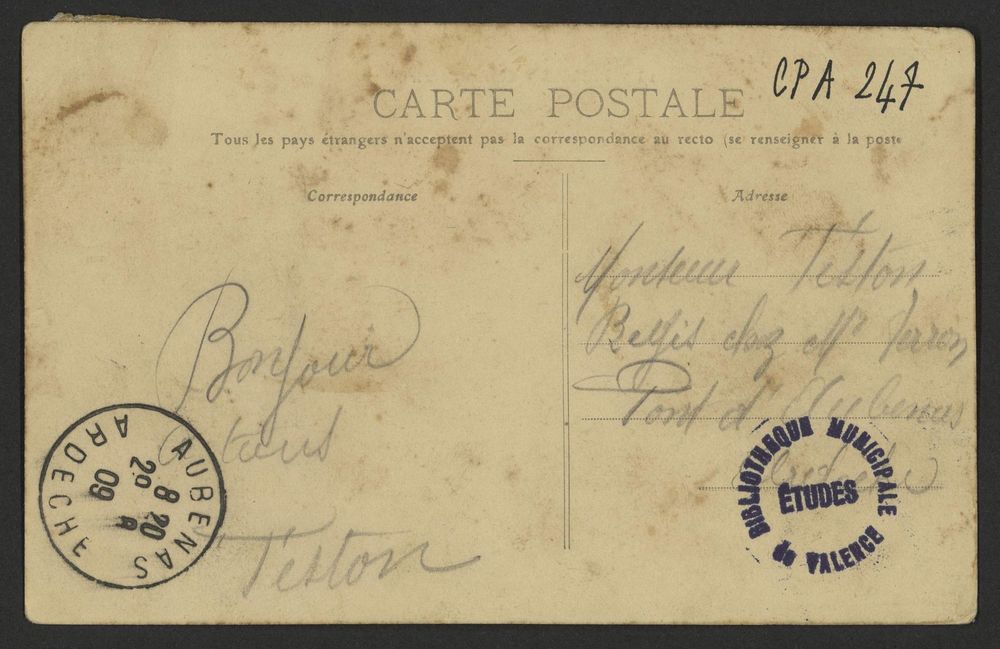 CPA 247
CARTE POSTALE
Tous les pays étrangers n'acceptent pas la correspondance au recto (se renseigner à la poste
Correspondance
Adresse
Bonjour
Teston
Monsieur Teston
chez Mr
Pont d'Aubenas
Ardèche
AUBENAS
8 20
20 8
09
ARDECHE
BIBLIOTHEQUE MUNICIPALE
ÉTUDES
de VALENCE